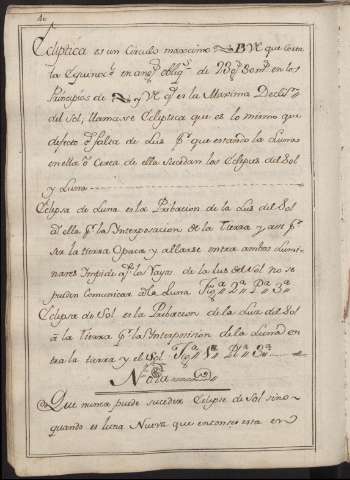 Ecliptica es un Circulo maxximo BVC que corta
la Equinoxˡ en angˢ obliqˢ de 23 gˢ 30 mˢ en los
Principios de y qᵉ es la Maxima Declinⁿ
del Sol; llamase Ecliptica que es lo mismo que
defecto ò falta de Luz pʳ que estando la Luna
en ella ò Cerca de ella suceden los Eclipses del Sol
y Luna
Eclipse de Luna es la Pribacion de la Luz del Sol
a ella pʳ la Ynterposicion de la Tierra y asi pʳ
ser la tierra Opaca y allarse entra ambos Lumi-
nares Impide qᵉ los Rayos de la luz del Sol no se
pueden Comunicar â la Luna Figᵃ 2ᵃ Pᵃ 3ᵃ
Eclipse de Sol es la Pribacion de la Luz del Sol
â la Tierra pʳ la Ynterposision de la Luna en
tra la tierra y el Sol Figᵃ 1ᵃ Pᵃ 3ᵃ
Nota
Que nunca puede suceder Eclipse de Sol sino
quando es luna Nueva que entonses esta en